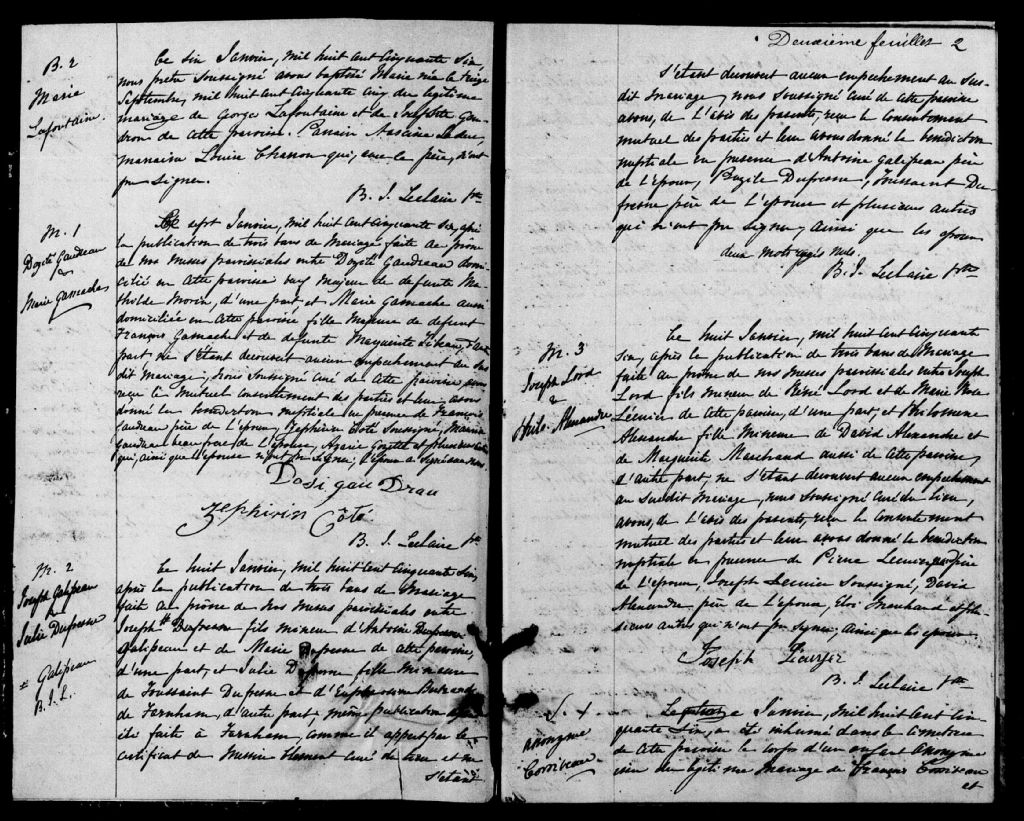 B. 2
Marie
Lafontaine.
Le six Janvier, mil huit cent cinquante six,
nous prêtre soussigné avons baptisé Marie née le treize
Septembre, mil huit cent cinquante cinq du légitime
mariage de George Lafontaine et de Josephte Gen-
dron de cette paroisse. Parrain Narcisse
marraine Louise Chasson qui, avec le père, n'ont
pu signer.
B. J. Leclaire Ptre
M. 1
Dozité Gaudreau
&
Marie Gamache
Le sept Janvier, mil huit cent cinquante six, après
la publication de trois bans de Mariage faite au prône
de nos messes paroissiales entre Dozité Gaudreau domi-
cilié en cette paroisse majeur de defunte Ma-
thilde Morin, d'une part, et Marie Gamache aussi
domiciliée en cette paroisse fille majeure de defunt
François Gamache et de defunte Marguerite d'autre
part, ne s'étant decouvert aucun empechement au sus-
dit mariage; Nous soussigné curé de cette paroisse, avons
reçu le mutuel consentement des parties et leur avons
donné la benediction nuptiale en presence de François
Gaudreau père de l'epoux, Zephirin Côté soussigné,
Gaudreau beau frère de l'epouse, et plusieurs autres
qui, ainsi que l'épouse n'ont pu signer; l'époux a signé
Dosi gau Drau
Zephirin Côté
B. J. Leclaire Ptre
M. 2
Joseph Galipeau
&
Julie Dufresne
= Galipeau
B. J. L.
Le huit Janvier, mil huit cent cinquante six,
après la publication de trois bans de Mariage
faite au prône de nos messes paroissiales entre
Joseph Dufresne fils mineur d'Antoine Dufresne
Galipeau et de Marie Dufresne de cette paroisse,
d'une part, et Julie Dufresne fille mineure
de Toussaint Dufresne et d'Euphrosine
de Farnham, d'autre part; même publication ayant
été faite à Farnham, comme il appert par le
certificat de Messire curé du lieu et ne
s'étant
Deuxième feuillet 2
s'étant decouvert aucun empechement au sus-
dit mariage, nous soussigné curé de cette paroisse
avons, de l'avis des parents, reçu le consentement
mutuel des parties et leur avons donné la benediction
nuptiale en presence d'Antoine Galipeau père
de l'epoux, Bazile Dufresne, Toussaint Du-
fresne père de l'epouse et plusieurs autres
qui n'ont pu signer, ainsi que les epoux
deux mots rayés nuls.
B. J. Leclaire Ptre
M. 3
Joseph Lord
&
Philo. Alexandre
Le huit Janvier, mil huit cent cinquante
six, après la publication de trois bans de Mariage
faite au prône de nos messes paroissiales entre Joseph
Lord fils mineur de Réné Lord et de Marie Rose
de cette paroisse, d'une part, et Philomene
Alexandre fille mineure de David Alexandre et
de Marguerite Marchand aussi de cette paroisse,
d'autre part, ne s'étant decouvert aucun empechement
au susdit mariage, nous soussigné curé du lieu,
avons, de l'avis des parents, reçu le consentement
mutuel des parties et leur avons donné la benediction
nuptiale en presence de Pierre père
de l'epoux, Joseph soussigné, David
Alexandre père de l'epouse, Marchand et plu-
sieurs autres qui n'ont pu signer, ainsi que les epoux
Joseph
B. J. Leclaire Ptre
S. 1
Anonyme
Corriveau.
Le Janvier, mil huit cent cin-
quante six, a été inhumé dans le cimetière
de cette paroisse le corps d'un enfant Anonyme
issu du légitime mariage de François Corriveau
et